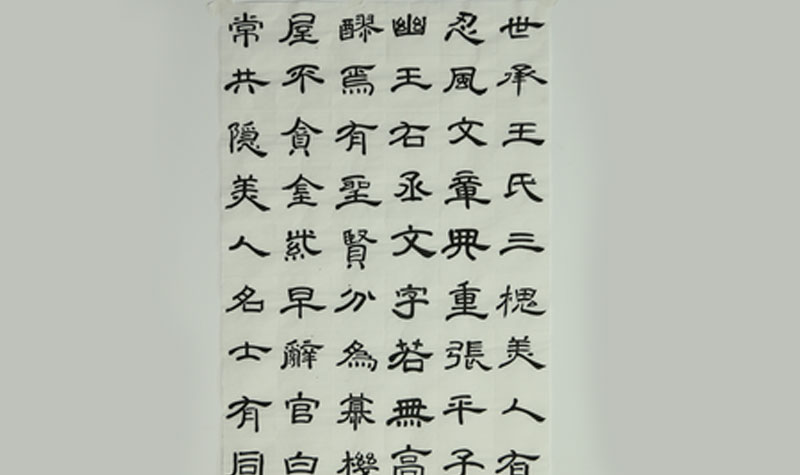 世承王氏三槐美人有
忍風文章典重張平子
幽王右丞文字若無高
醪焉有聖賢分為機
屋不貪金紫早辭官白
常共隱美人名士有同